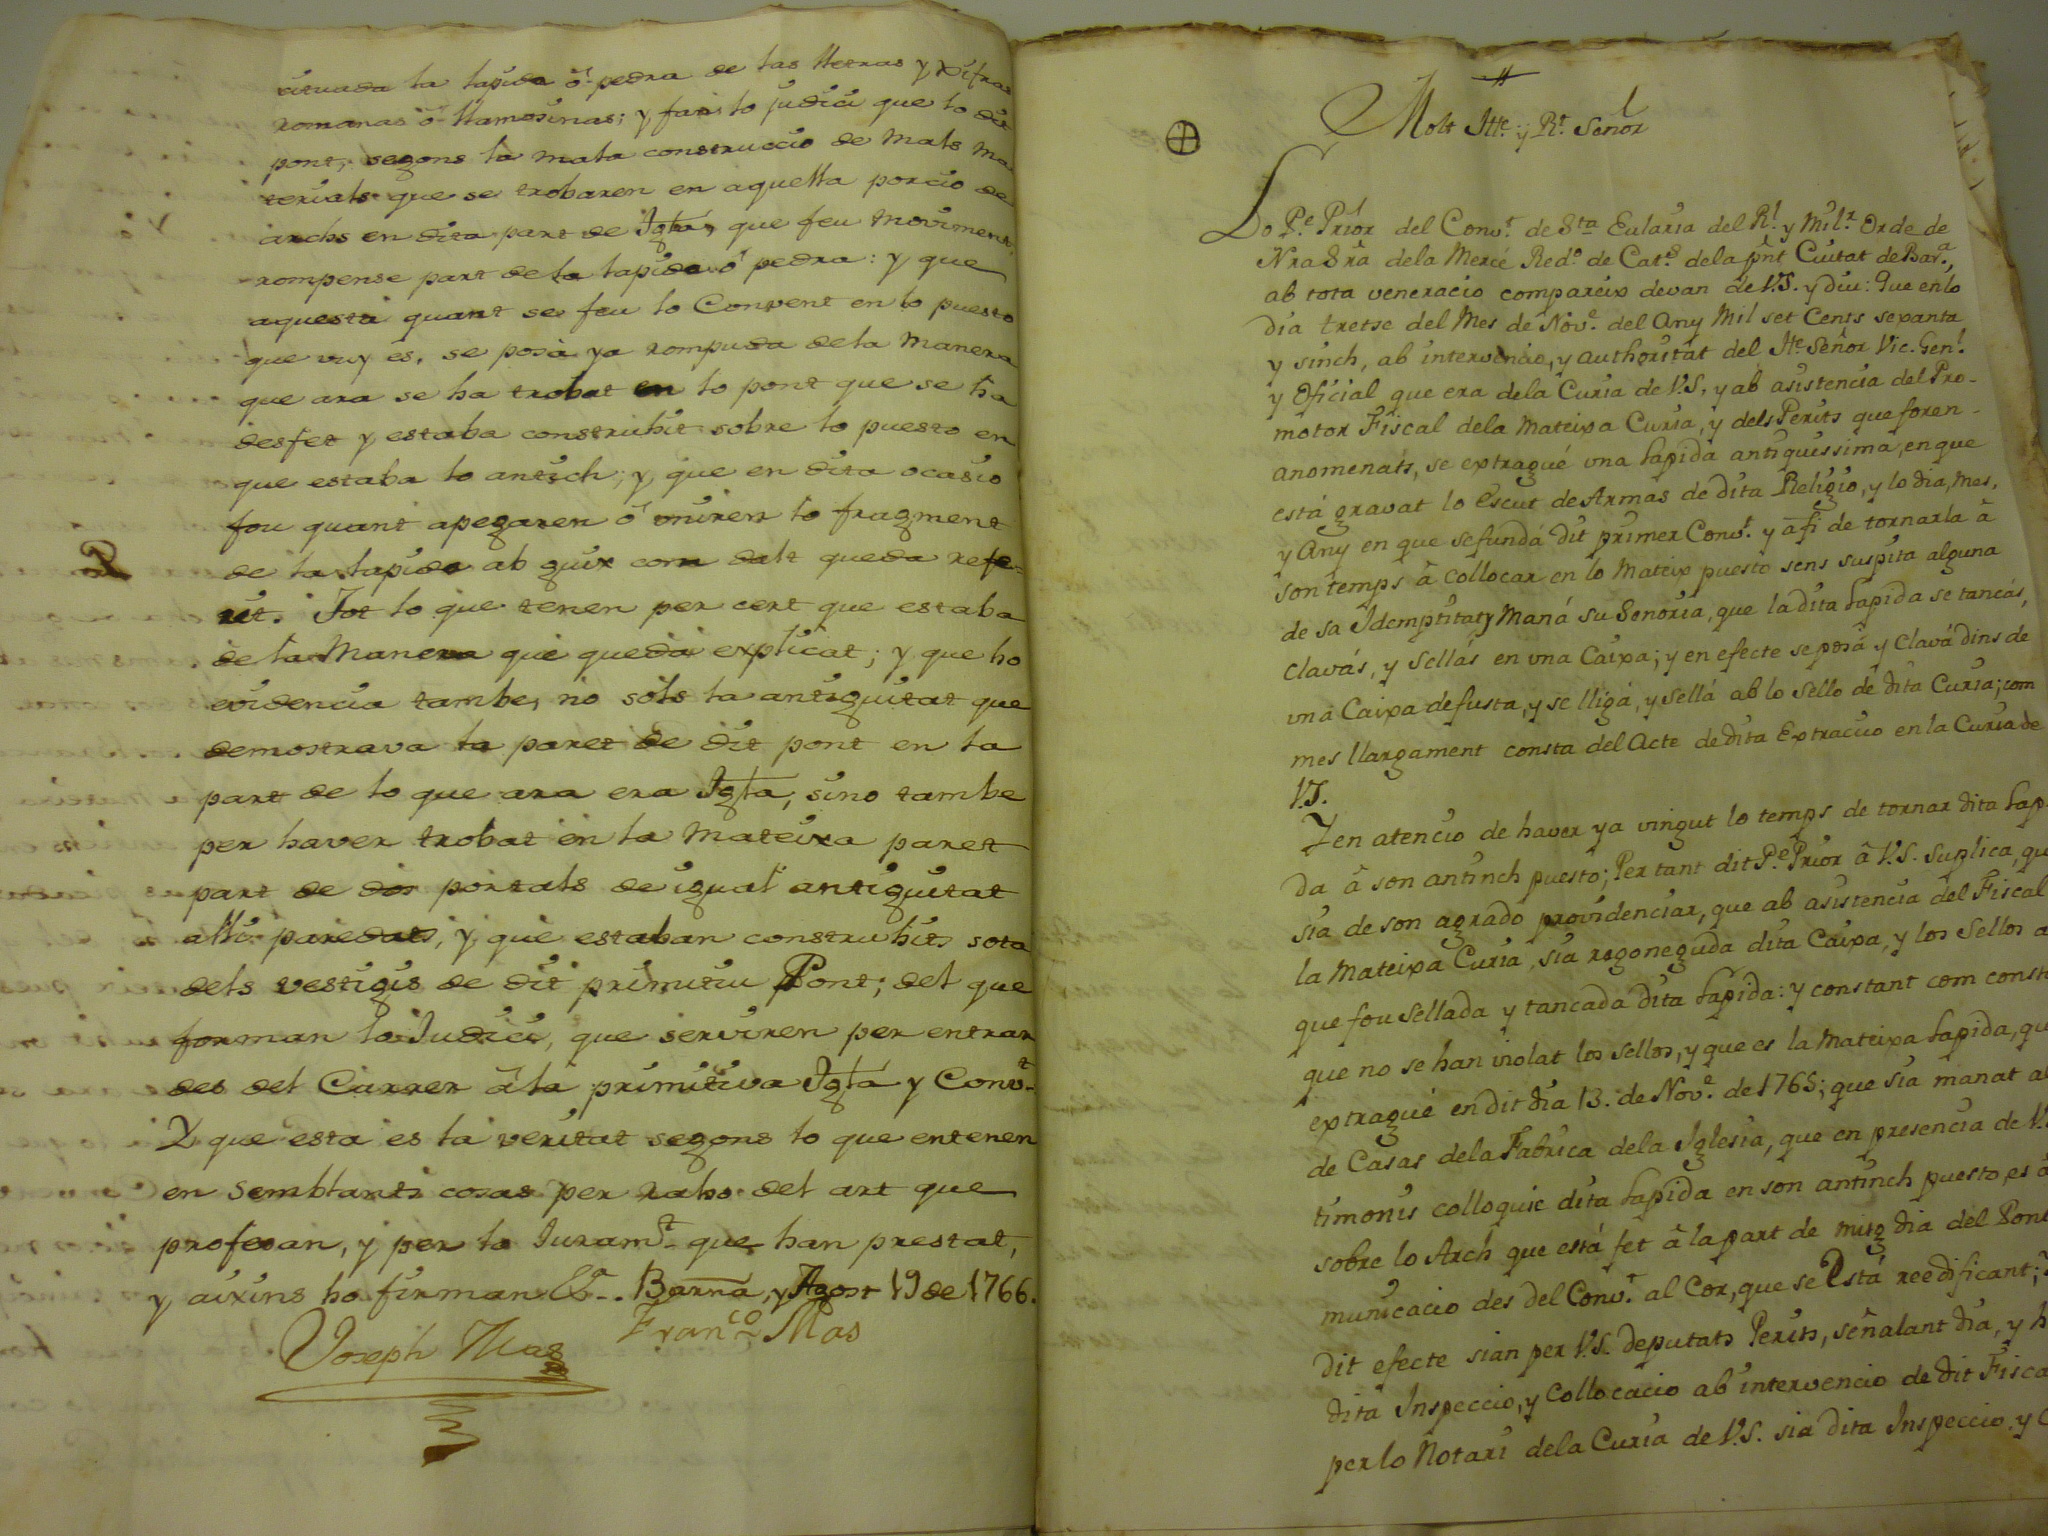 situada la lapida ó pedra de las lletras y xifras
romanas ó llamosinas; y fan lo judici que lo dit
pont, segons la mala construccio de mals ma
terials que se trobaren en aquella porcio de
archs en dita part de Igla, que feu moviment
rompense part de la lapida ó pedra: y que
aquesta quant se feu lo Convent en lo puesto
que vuy es, se posá ya rompuda de la manera
que ara se ha trobat en lo pont que se ha
desfet y estaba construhit sobre lo puesto en
que estaba lo antich; y que en dita ocasio
fou quant apegaren ó uniren lo fragment
de la lapida ab guix com dalt queda refe-
rit. Tot lo que tenen per cert que estaba
de la Manera que queda explicat; y que ho
evidencia tambe, no sols la antiguitat que
demostrava la paret de dit pont en la
part de lo que ara era Igla, sino tambe
per haver trobat en la mateixa paret
part de dos portals de igual antiguitat
allí paredats, y que estaban construhits sota
dels vestigis de dit primitiu Pont; del que
forman lo Judici, que serviren per entrar
des del Carrer á la primitiva Iglá y Convt.
Y que esta es la veritat segons lo que entenen
en semblants cosas per raho del art que
profesan, y per lo Juramt. que han prestat,
y aixins ho firman &a. Barna. y Agost 19 de 1766.
Joseph Mas Franco Mas
Molt Itte. y Rt. Señor
Lo Pe. Prior del Convt. de Sta Eularia del Rl. y Milr. Orde de
Nra Srã dela Mercé Redo. de Cats. dela pnt Ciutat de Bara.,
ab tota veneracio compareix devan de V.S. y diu: Que en lo
dia tretse del Mes de Nove. del Any Mil set Cents sexanta
y sinch, ab intervencio, y authoritat del Itte Señor Vic. Genl.
y Oficial que era dela Curia de V.S. y ab asistencia del Pro-
motor Fiscal dela Mateixa Curia, y dels Perits que foren
anomenats, se extragué una Lapida antiquissima, en que
está gravat lo Escut de Armas de dita Religio, y lo dia, Mes,
y Any en que se fundá dit primer Convt. y á fi de tornarla á
son temps á collocar en lo Mateix puesto sens suspita alguna
de sa Idemptitat y Maná su Senoria, que la dita Lapida se tancás,
clavás, y sellás en una Caixa; y en efecte se posá y clavá dins de
una Caixa de fusta, y se lligá, y sellá ab lo Sello de dita Curia; com
mes llargament consta del Acte de dita Extraccio en la Curia de
V.S.
Y en atencio de haver ya vingut lo temps de tornar dita Lap-
da á son antinch puesto; Per tant dit Pe. Prior á V.S. Suplica, qu
sia de son agrado providenciar, que ab asistencia del Fiscal
la Mateixa Curia, sia regoneguda dita Caixa, y los Sellos a
que fou sellada y tancada dita Lapida: y constant com const
que no se han violat los Sellos, y que es la Mateixa Lapida, qu
extragué en dit dia 13. de Nove. de 1765; que sia manat al
de Casas dela Fabrica dela Iglesia, que en presencia de V.
timonis colloquie dita Lapida en son antinch puesto, es á
sobre lo Arch que está fet á la part de mitg dia del Pont
municacio des del Convt. al Cor, que se está reedificant;
dit efecte sian per V.S. deputats Perits, señalant dia, y h
dita Inspeccio, y Collocacio ab intervencio de dit Fisca
per lo Notari dela Curia de V.S. sia dita Inspeccio, y C